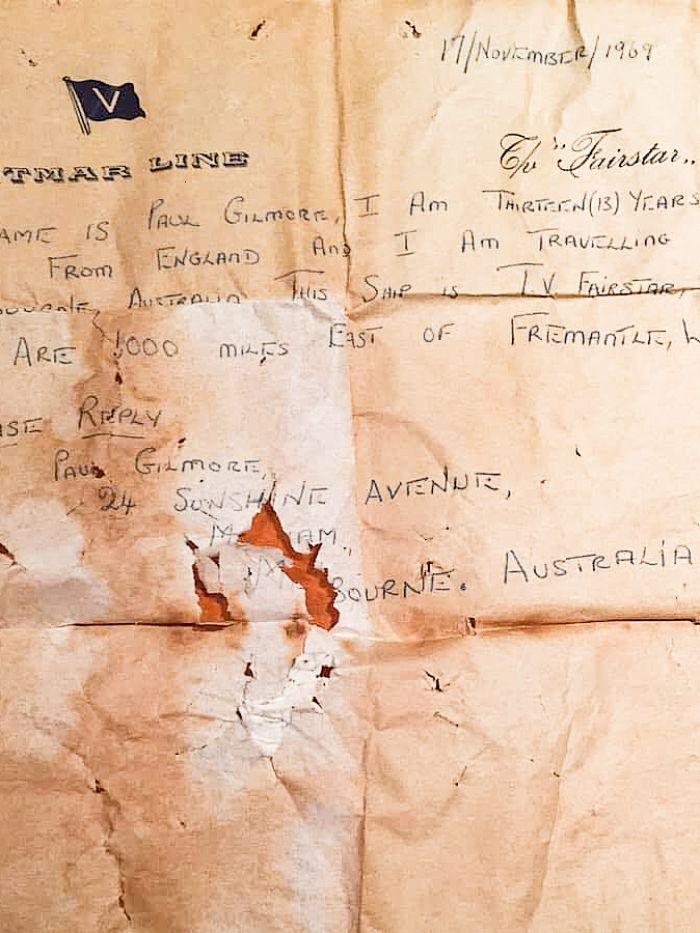 17/NOVEMBER/1969
V
TMAR LINE
T/v "Fairstar"
AME IS PAUL GILMORE, I AM THIRTEEN(13) YEARS
FROM ENGLAND AND I AM TRAVELLING
OURNE, AUSTRALIA THIS SHIP IS T.V FAIRSTAR,
ARE 1000 MILES EAST OF FREMANTLE, W
ASE REPLY
PAUL GILMORE,
24 SUNSHINE AVENUE,
M AM,
BOURNE. AUSTRALIA